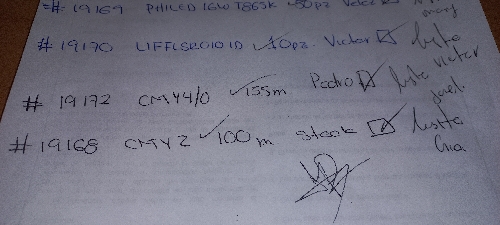 # 19169 PHILED 16W T865K ✓50pz Victor
# 19170 LIFFLSR01OID ✓10pz. Victor ☑ listo
# 19172 CMY4/0 ✓155m Pedro ☑ listo Victor
# 19168 CMY2 ✓100m Stock ☑ listo